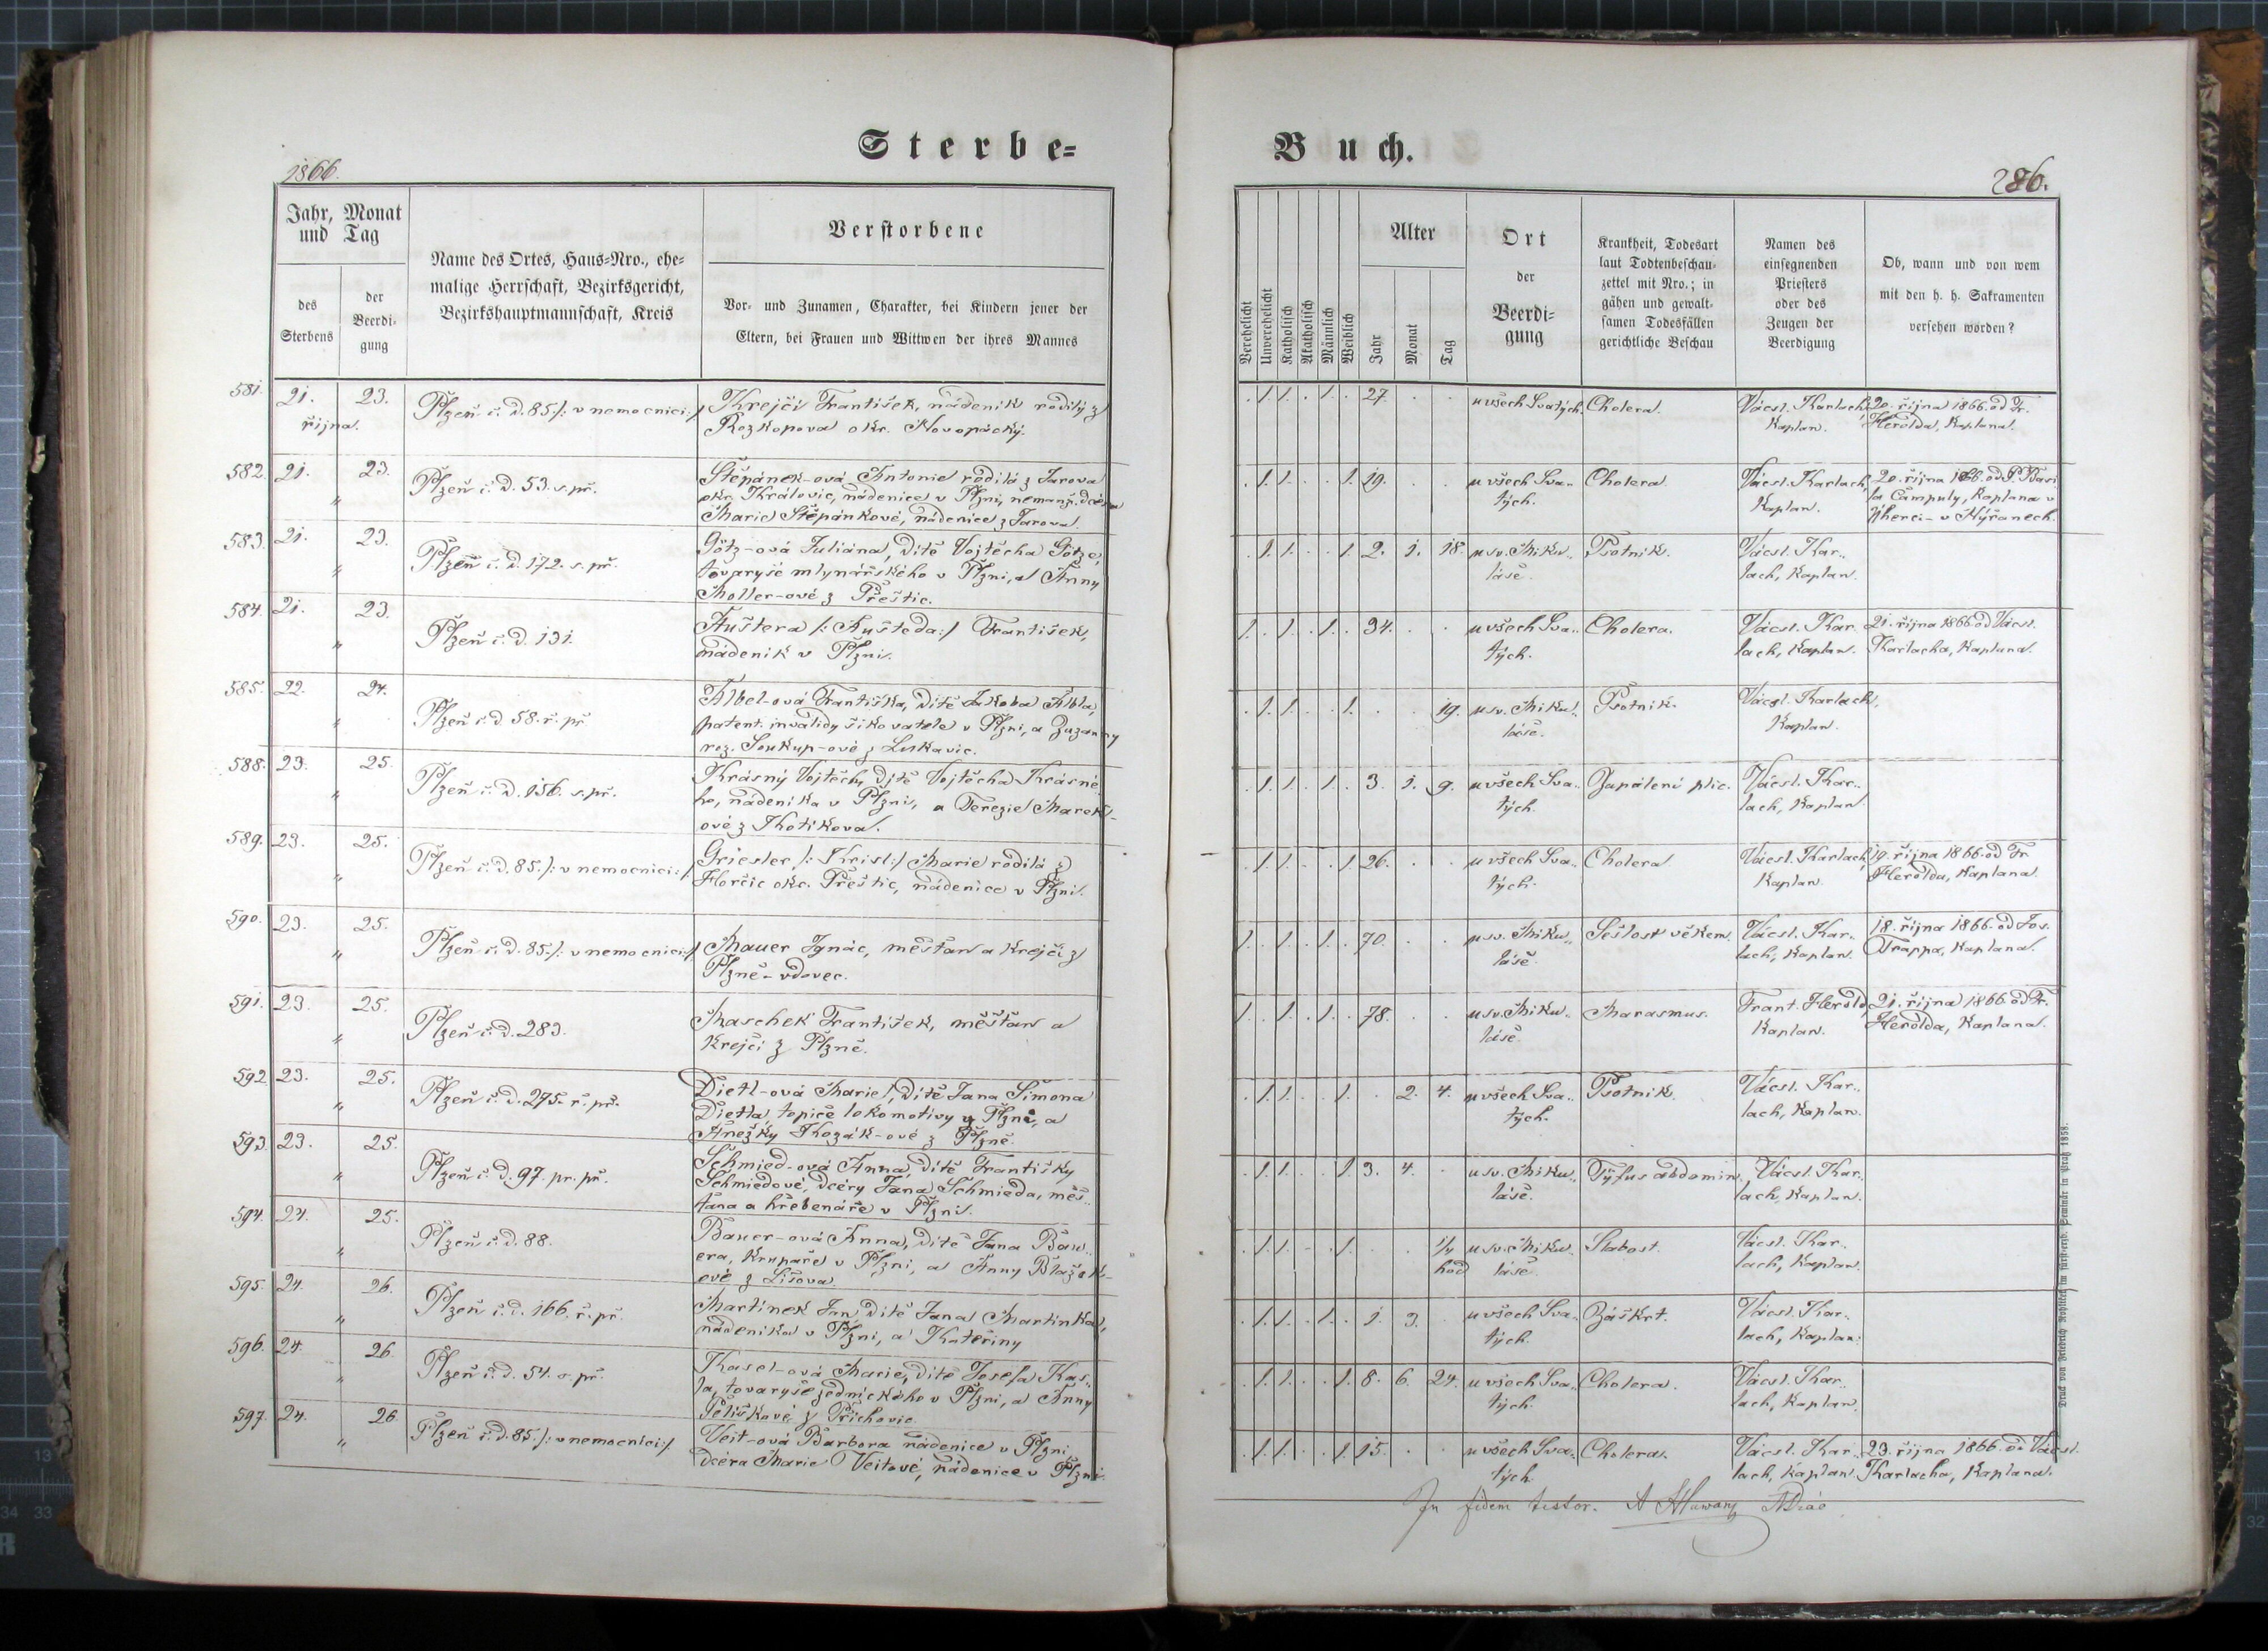 Sterbe-
1866.
Jahr, Monat
und Tag
des
Sterbens
der
Beerdi-
gung
Name des Ortes, Haus-Nro., ehe-
malige Herrschaft, Bezirksgericht,
Bezirkshauptmannschaft, Kreis
Verstorbene
Vor- und Zunamen, Charakter, bei Kindern jener der
Eltern, bei Frauen und Wittwen der ihres Mannes
581. 21. 23. Plzeň č. d. 85. /: v nemocnici :/ Krejčí František, nádeník rodilý z
října. Rozkopova okr. Novopácký.
582. 21. 23. Plzeň č. d. 53. s. př. Štěpánek-ová Antonie rodilá z Jarova
„ okr. Královic, nádenice v Plzni, nemanž. dcéra
Marie Štěpánkové, nádenice z Jarova.
583. 21. 23. Plzeň č. d. 172. s. př. Götz-ová Juliána, dítě Vojtěcha Götze,
„ tovaryše mlynářského v Plzni, a Anny
Moller-ové z Přeštic.
584. 21. 23. Plzeň č. d. 131. Auštera /: Aušteda :/ František,
„ nádeník v Plzni.
585. 22. 24. Plzeň č. d. 58. ř. př. Albel-ová Františka, dítě Jakoba Albla,
„ patent. invalidy šikovatele v Plzni, a Zuzanny
roz. Soukup-ové z Lukavic.
588. 23. 25. Plzeň č. d. 156. s. př. Krásný Vojtěch, dítě Vojtěcha Krásné-
„ ho, nádeníka v Plzni, a Terezie Marek-
ové z Kotikova.
589. 23. 25. Plzeň č. d. 85. /: v nemocnici :/ Griesler, /: Kreisl :/ Marie rodilá z
„ Horčic okr. Přeštic, nádenice v Plzni.
590. 23. 25. Plzeň č. d. 85. /: v nemocnici :/ Mauer Ignác, měšťan a krejčí z
„ Plzně - vdovec.
591. 23. 25. Plzeň č. d. 283. Maschek František, měšťan a
„ krejčí z Plzně.
592. 23. 25. Plzeň č. d. 275. ř. př. Dietl-ová Marie, dítě Jana Šimona
„ Dietla, topiče lokomotivy v Plzni, a
Anežky Kozák-ové z Plzně.
593. 23. 25. Plzeň č. d. 97. pr. př. Schmied-ová Anna, dítě Františky
„ Schmiedové, dcéry Jana Schmieda, měš-
ťana a hřebenáře v Plzni.
594. 24. 25. Plzeň č. d. 88. Bauer-ová Anna, dítě Jana Bau-
„ era, krupaře v Plzni, a Anny Blažek-
ové z Lišova.
595. 24. 26. Plzeň č. d. 166. ř. př. Martinek Jan, dítě Jana Martinka,
„ nádeníka v Plzni, a Kateřiny
596. 24. 26. Plzeň č. d. 54. s. př. Kasel-ová Marie, dítě Josefa Kas-
„ la, tovaryše v Plzni, a Anny
z Přichovic.
597. 24. 26. Plzeň č. d. 85. /: v nemocnici :/ Veit-ová Barbora nádenice v Plzni
„ dcéra Marie Veitové, nádenice v Plzni.
Buch.
286.
Verehelicht
Unverehelicht
Katholisch
Akatholisch
Männlich
Weiblich
Alter
Jahr
Monat
Tag
Ort
der
Beerdi-
gung
Krankheit, Todesart
laut Todtenbeschau-
zettel mit Nro.; in
gähen und gewalt-
samen Todesfällen
gerichtliche Beschau
Namen des
einsegnenden
Priesters
oder des
Zeugen der
Beerdigung
Ob, wann und von wem
mit den h. h. Sakramenten
versehen worden?
. 1. 1. . 1. . 27. . . u všech Svatých Cholera. Vácsl. Karlach, 20. října 1866 od Fr.
Kaplan. Herolda, Kaplana.
. 1. 1. . . 1. 19. . . u všech Sva- Cholera Vácsl. Karlach, 20. října 1866. od P. Basi
tých. Kaplan. la Čampuly, Kaplana v
v Nýřanech.
. 1. 1. . . 1. 2. 1. 18. u sv. Miku- Psotník. Vácsl. Kar-
láše. lach, Kaplan.
1. . 1. . 1. . 34. . . u všech Sva- Cholera. Vácsl. Kar- 21. října 1866 od Vácsl.
tých. lach, Kaplan. Karlacha, Kaplana.
. 1. 1. . . 1. . . 19. u sv. Miku- Psotník. Vácsl. Karlach,
láše. Kaplan.
. 1. 1. . 1. . 3. 1. 9. u všech Sva- Zapálení plic. Vácsl. Kar-
tých. lach, Kaplan.
. 1. 1. . . 1. 26. . . u všech Sva- Cholera Vácsl. Karlach, 19. října 1866. od Fr.
tých. Kaplan. Herolda, Kaplana.
1. . 1. . 1. . 70. . . u sv. Miku- Sešlost věkem. Vácsl. Kar- 18. října 1866. od Jos.
láše. lach, Kaplan. Trappa, Kaplana.
1. . 1. . 1. . 78. . . u sv. Miku- Marasmus. Frant. Herold, 21. října 1866. od Fr.
láše. Kaplan. Herolda, Kaplana.
. 1. 1. . . 1. . 2. 4. u všech Sva- Psotník. Vácsl. Kar-
tých. lach, Kaplan.
. 1. 1. . . 1. 3. 4. . u sv. Miku- Týfus abdomin. Vácsl. Kar-
láše. lach, Kaplan.
. 1. 1. . . 1. . . 1/4 u sv. Miku- Slabost. Vácsl. Kar-
hod láše. lach, Kaplan.
. 1. 1. . 1. . 1. 3. . u všech Sva- Záškrt. Vácsl. Kar-
tých. lach, Kaplan.
. 1. 1. . . 1. 8. 6. 24. u všech Sva- Cholera. Vácsl. Kar-
tých. lach, Kaplan.
. 1. 1. . . 1. 15. . . u všech Sva- Cholera. Vácsl. Kar- 23. října 1866. od Vácsl.
tých. lach, Kaplan. Karlacha, Kaplana.
In fidem testor.
Druck von Friedrich Rohliček im fürsterzb. Seminär in Prag 1858.